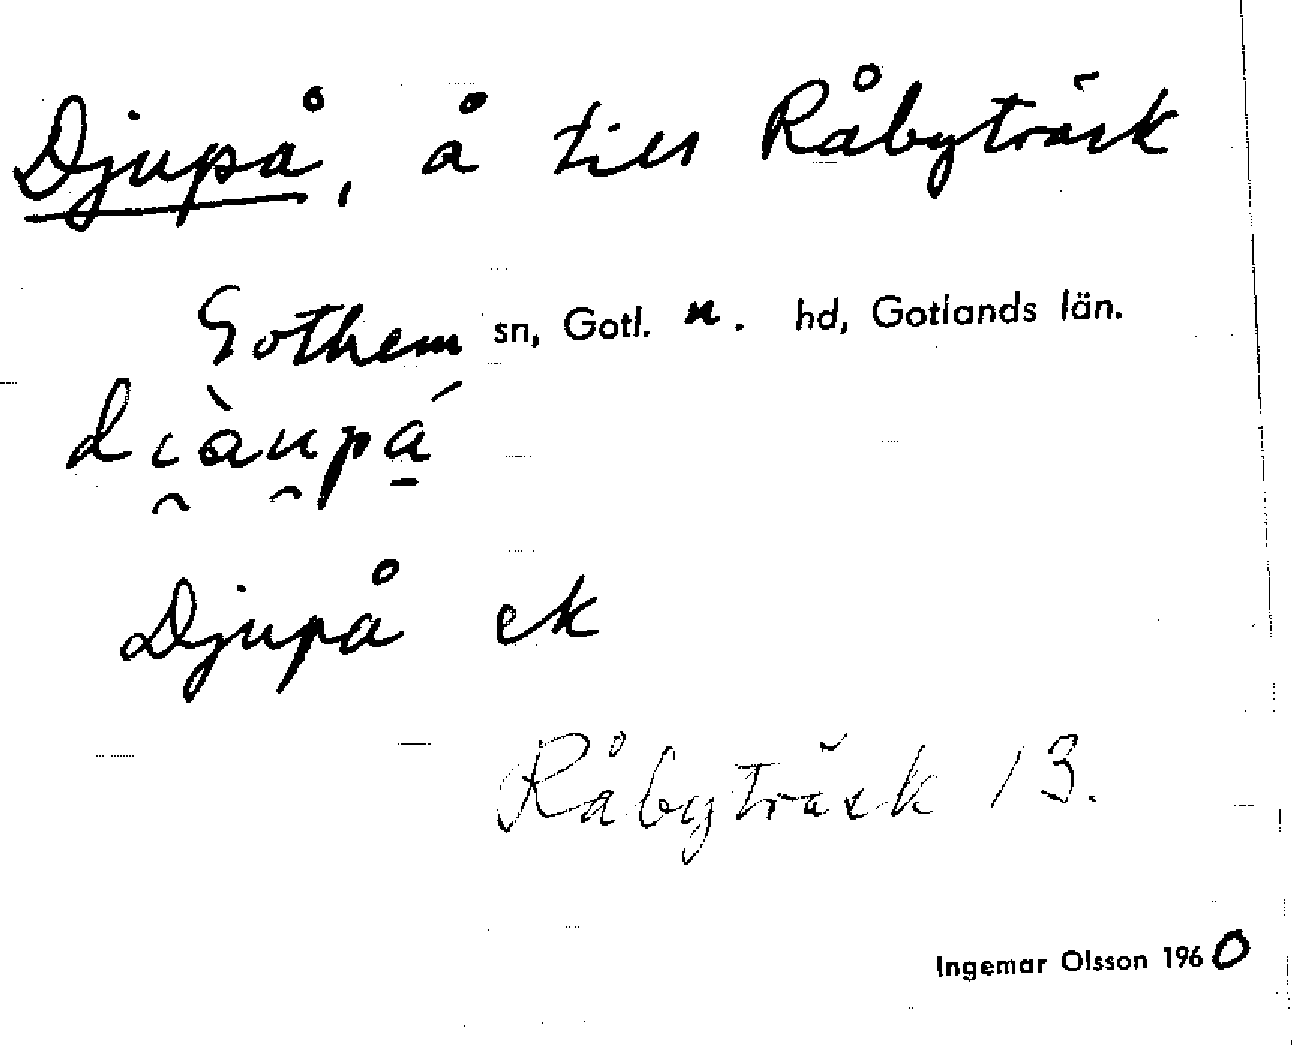 Djupå, å till Råbyträsk
Gothem sn, Gotl. n. hd, Gotlands län.
di̯àu̯pá̱
Djupå ek
Råbyträsk 13.
Ingemar Olsson 1960